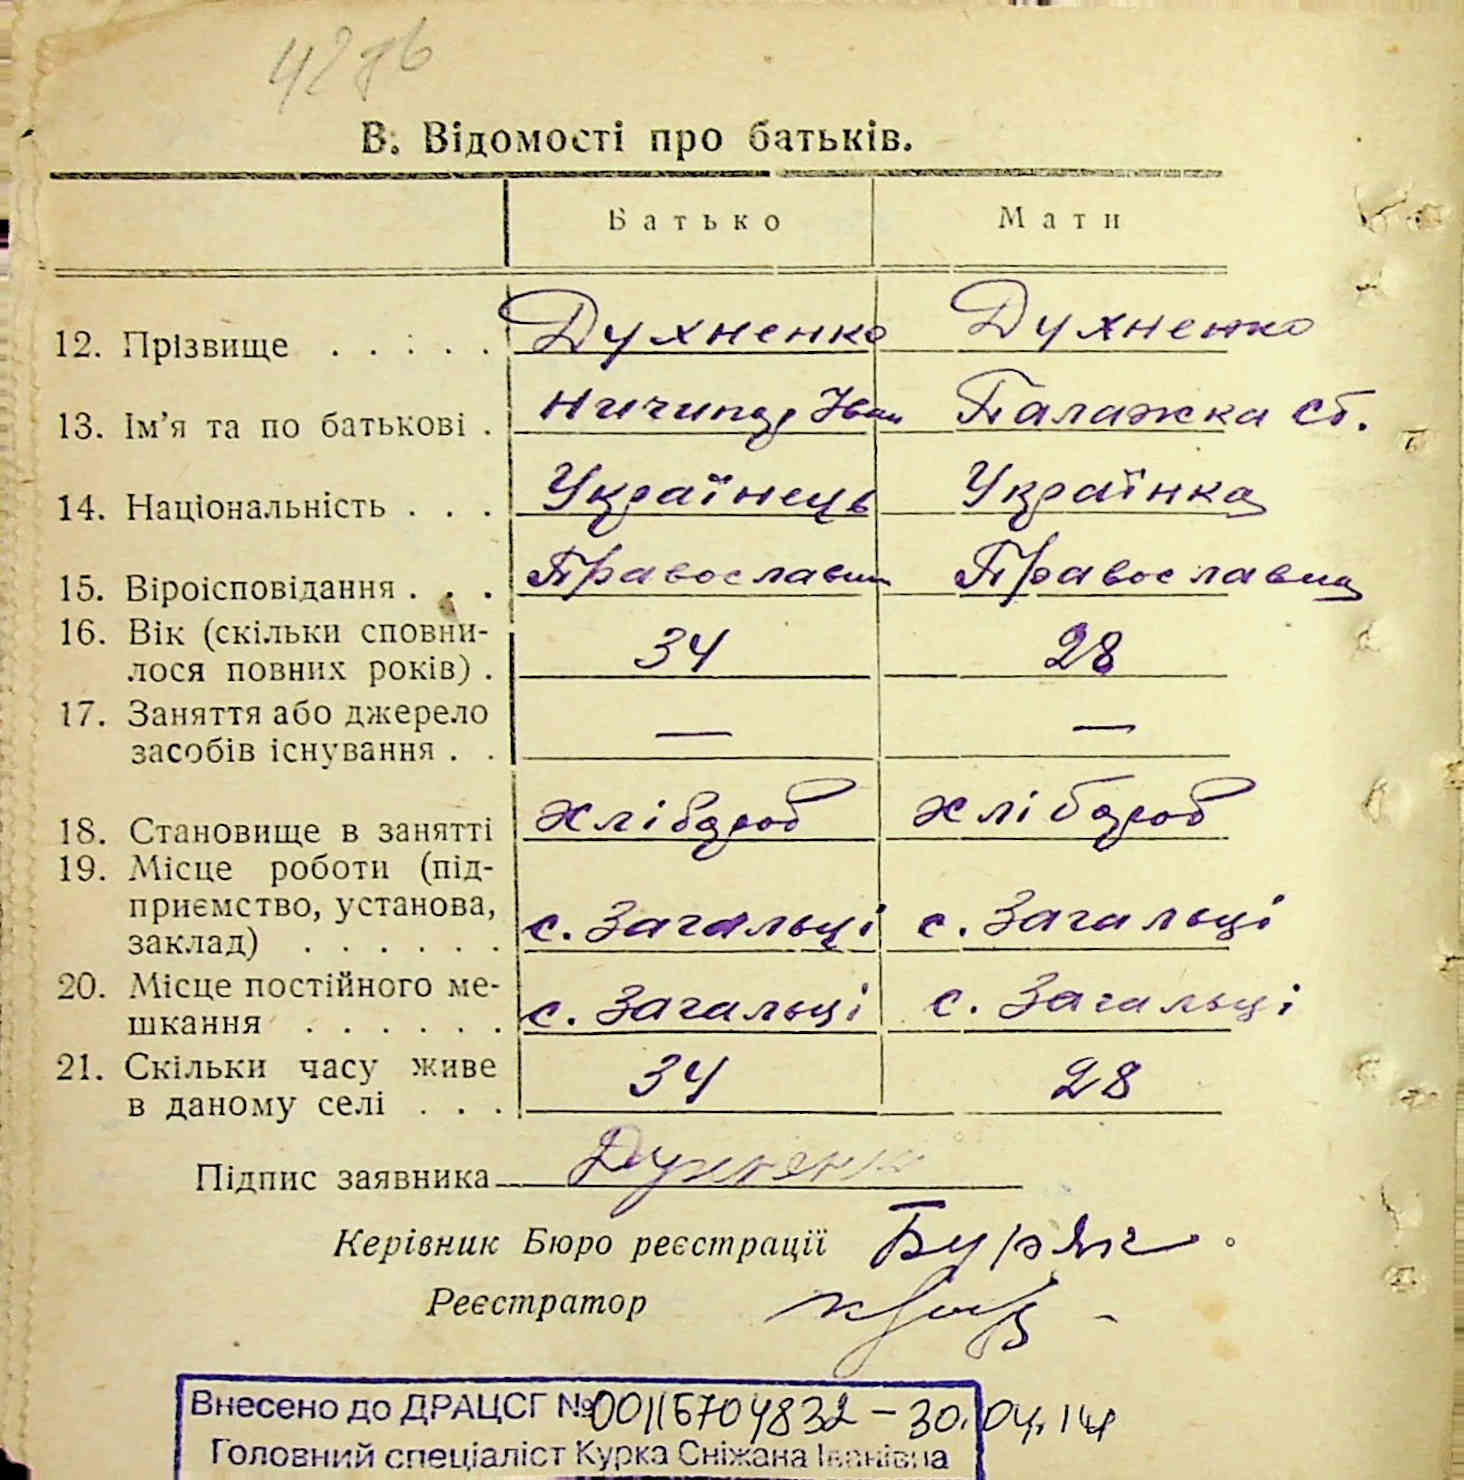 В. Відомості про батьків.
Батько Мати
12. Прізвище . . . . . Духненко Духненко
13. Ім'я та по батькові . Ничипор Іван Палажка Ст.
14. Національність . . . Українець Українка
15. Віроісповідання . . . Православн Православна
16. Вік (скільки сповни-
лося повних років) . 34 28
17. Заняття або джерело
засобів існування . . — —
18. Становище в занятті хлібороб хлібороб
19. Місце роботи (під-
приємство, установа,
заклад) . . . . . . с. Загальці с. Загальці
20. Місце постійного ме-
шкання . . . . . . с. Загальці с. Загальці
21. Скільки часу живе
в даному селі . . . 34 28
Підпис заявника Духненко
Керівник Бюро реєстрації
Реєстратор
Внесено до ДРАЦСГ №00116704832 – 30.04.14
Головний спеціаліст Курка Сніжана Іванівна